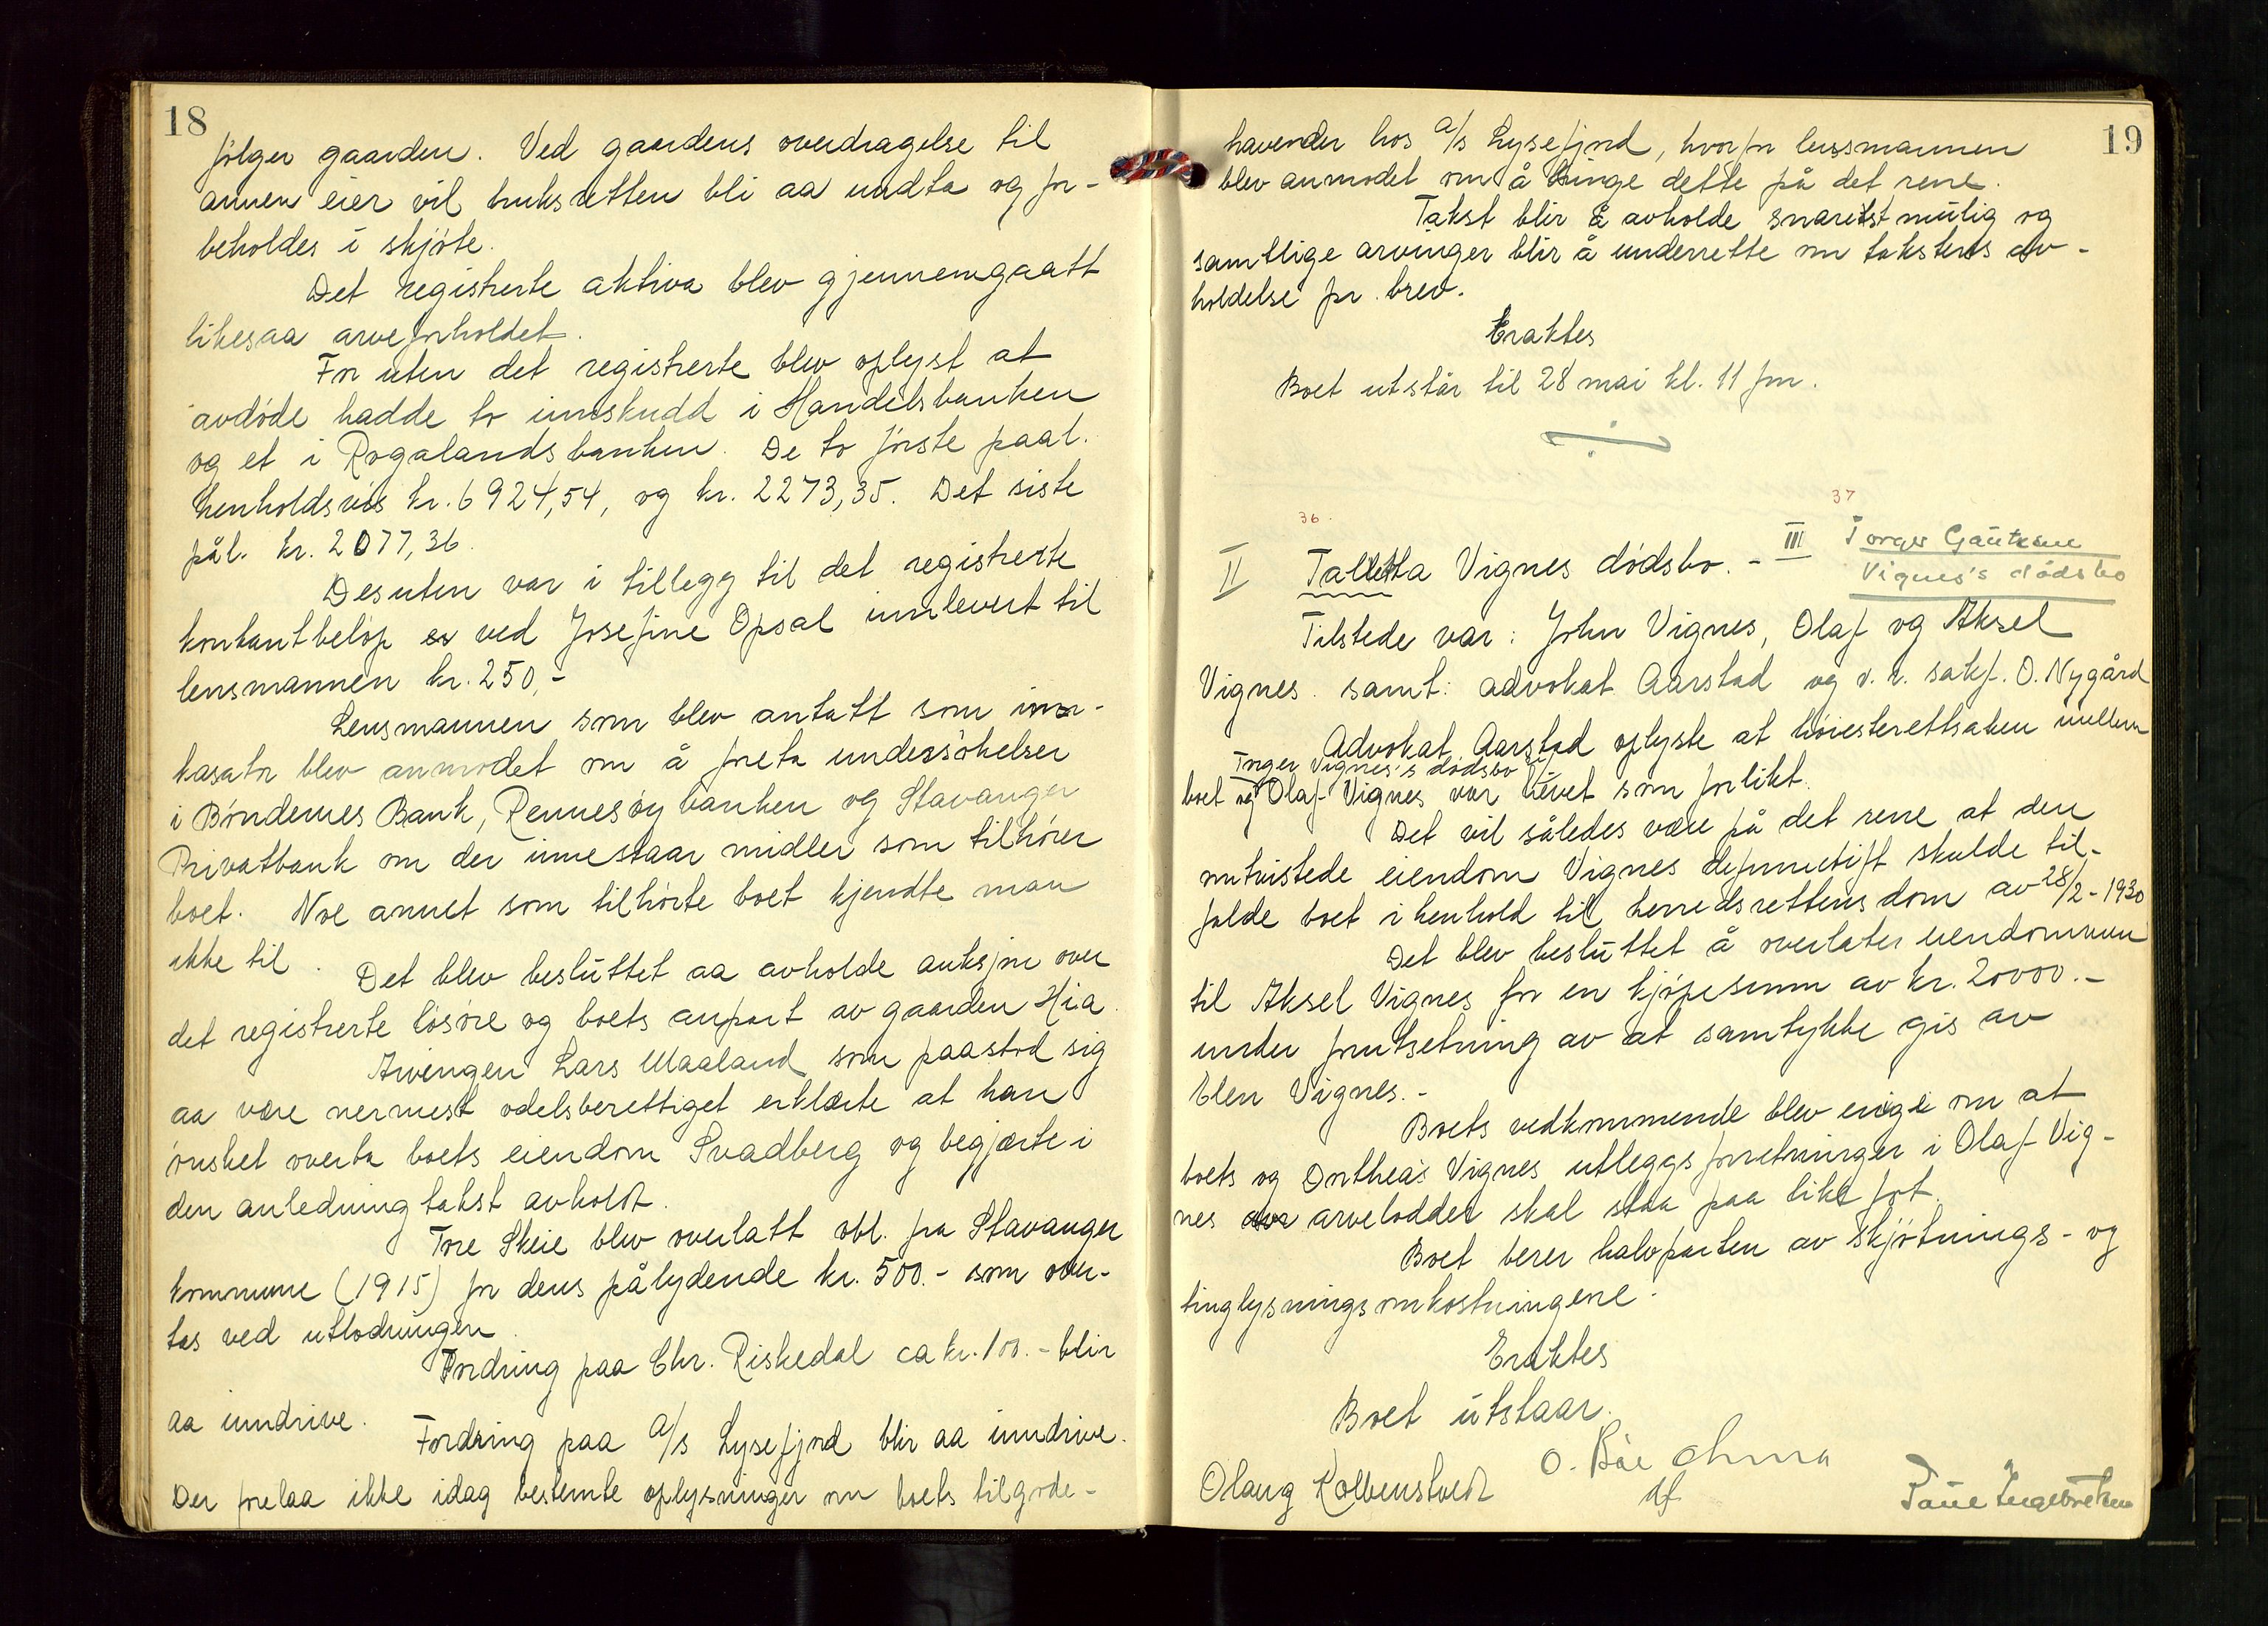 18
følger gaarden. Ved gaardens overdragelse til
annen eier vil bruksretten bli aa undta og for-
beholdes i skjøte.
Det registrerte aktiva blev gjennemgaatt
likesaa arveforholdet.
For uten det registrerte blev oplyst at
avdøde hadde to innskudd i Handelsbanken
og et i Rogalandsbanken. De to første paal.
henholdsvis kr. 6924,54, og kr. 2273,35. Det siste
pål. kr. 2077,36.
Desuten var i tillegg til det registrerte
kontantbeløp ved Josefine Opsal innlevert til
lensmannen kr. 250,-
Lensmannen som blev antatt som inn-
kasator blev anmodet om å foreta undersøkelser
i Bøndernes Bank, Rennesøy banken og Stavanger
Privatbank om der innestaar midler som tilhører
boet. Noe annet som tilhørte boet kjendte man
ikke til.
Det blev besluttet aa avholde auksjon over
det registrerte løsøre og boets anpart av gaarden Hia.
Arvingen Lars Maaland som paastod sig
aa være nermest odelsberettiget erklærte at han
ønsket overta boets eiendom Svadberg og begjærte i
den anledning takst avholdt.
Tore Skeie blev overlatt obl. fra Stavanger
kommune (1915) for dens pålydende kr. 500.- som over-
tas ved utlodningen.
Fordring paa Chr. Riskedal ca kr. 100.- blir
aa inndrive.
Fordring paa A/S Lysefjord blir aa inndrive.
Der forelaa ikke idag bestemte oplysninger om boets tilgode-
19
havender hos A/S Lysefjord, hvorfor lensmannen
blev anmodet om å bringe dette på det rene.
Takst blir å avholde snarest mulig og
samtlige arvinger blir å underrette om takstens av-
holdelse pr. brev.
Eraktes
Boet utstår til 28 mai kl. 11 fm.
36. 37
II Talletta Vignes dødsbo. - III Torger Gautesene
Vignes's dødsbo
Tilstede var: John Vignes, Olaf og Aksel
Vignes. samt: advokat Aarstad og o.r. sakf. O. Nygård
Advokat Aarstad oplyste at høiesterettsaken mellem
Torger Vignes's dødsbo
boet og Olaf Vignes var hevet som forlikt.
Det vil således være på det rene at den
omtvistede eiendom Vignes definitift skulde til-
falde boet i henhold til herredsrettens dom av 28/2-1930
Det blev besluttet å overlates eiendommen
til Aksel Vignes for en kjøpesum av kr. 20000.-
under forutsetning av at samtykke gis av
Elen Vignes.-
Boets vedkommende blev enige om at
boets og Ortheas Vignes utleggsforretninger i Olaf Vig-
nes arvelodder skal staa paa like fot.
Boet berer halvparten av skjøtnings- og
tinglysningsomkostningene.
Eraktes
Boet utstaar.
O. Bøe
Olaug Kolbenstvedt